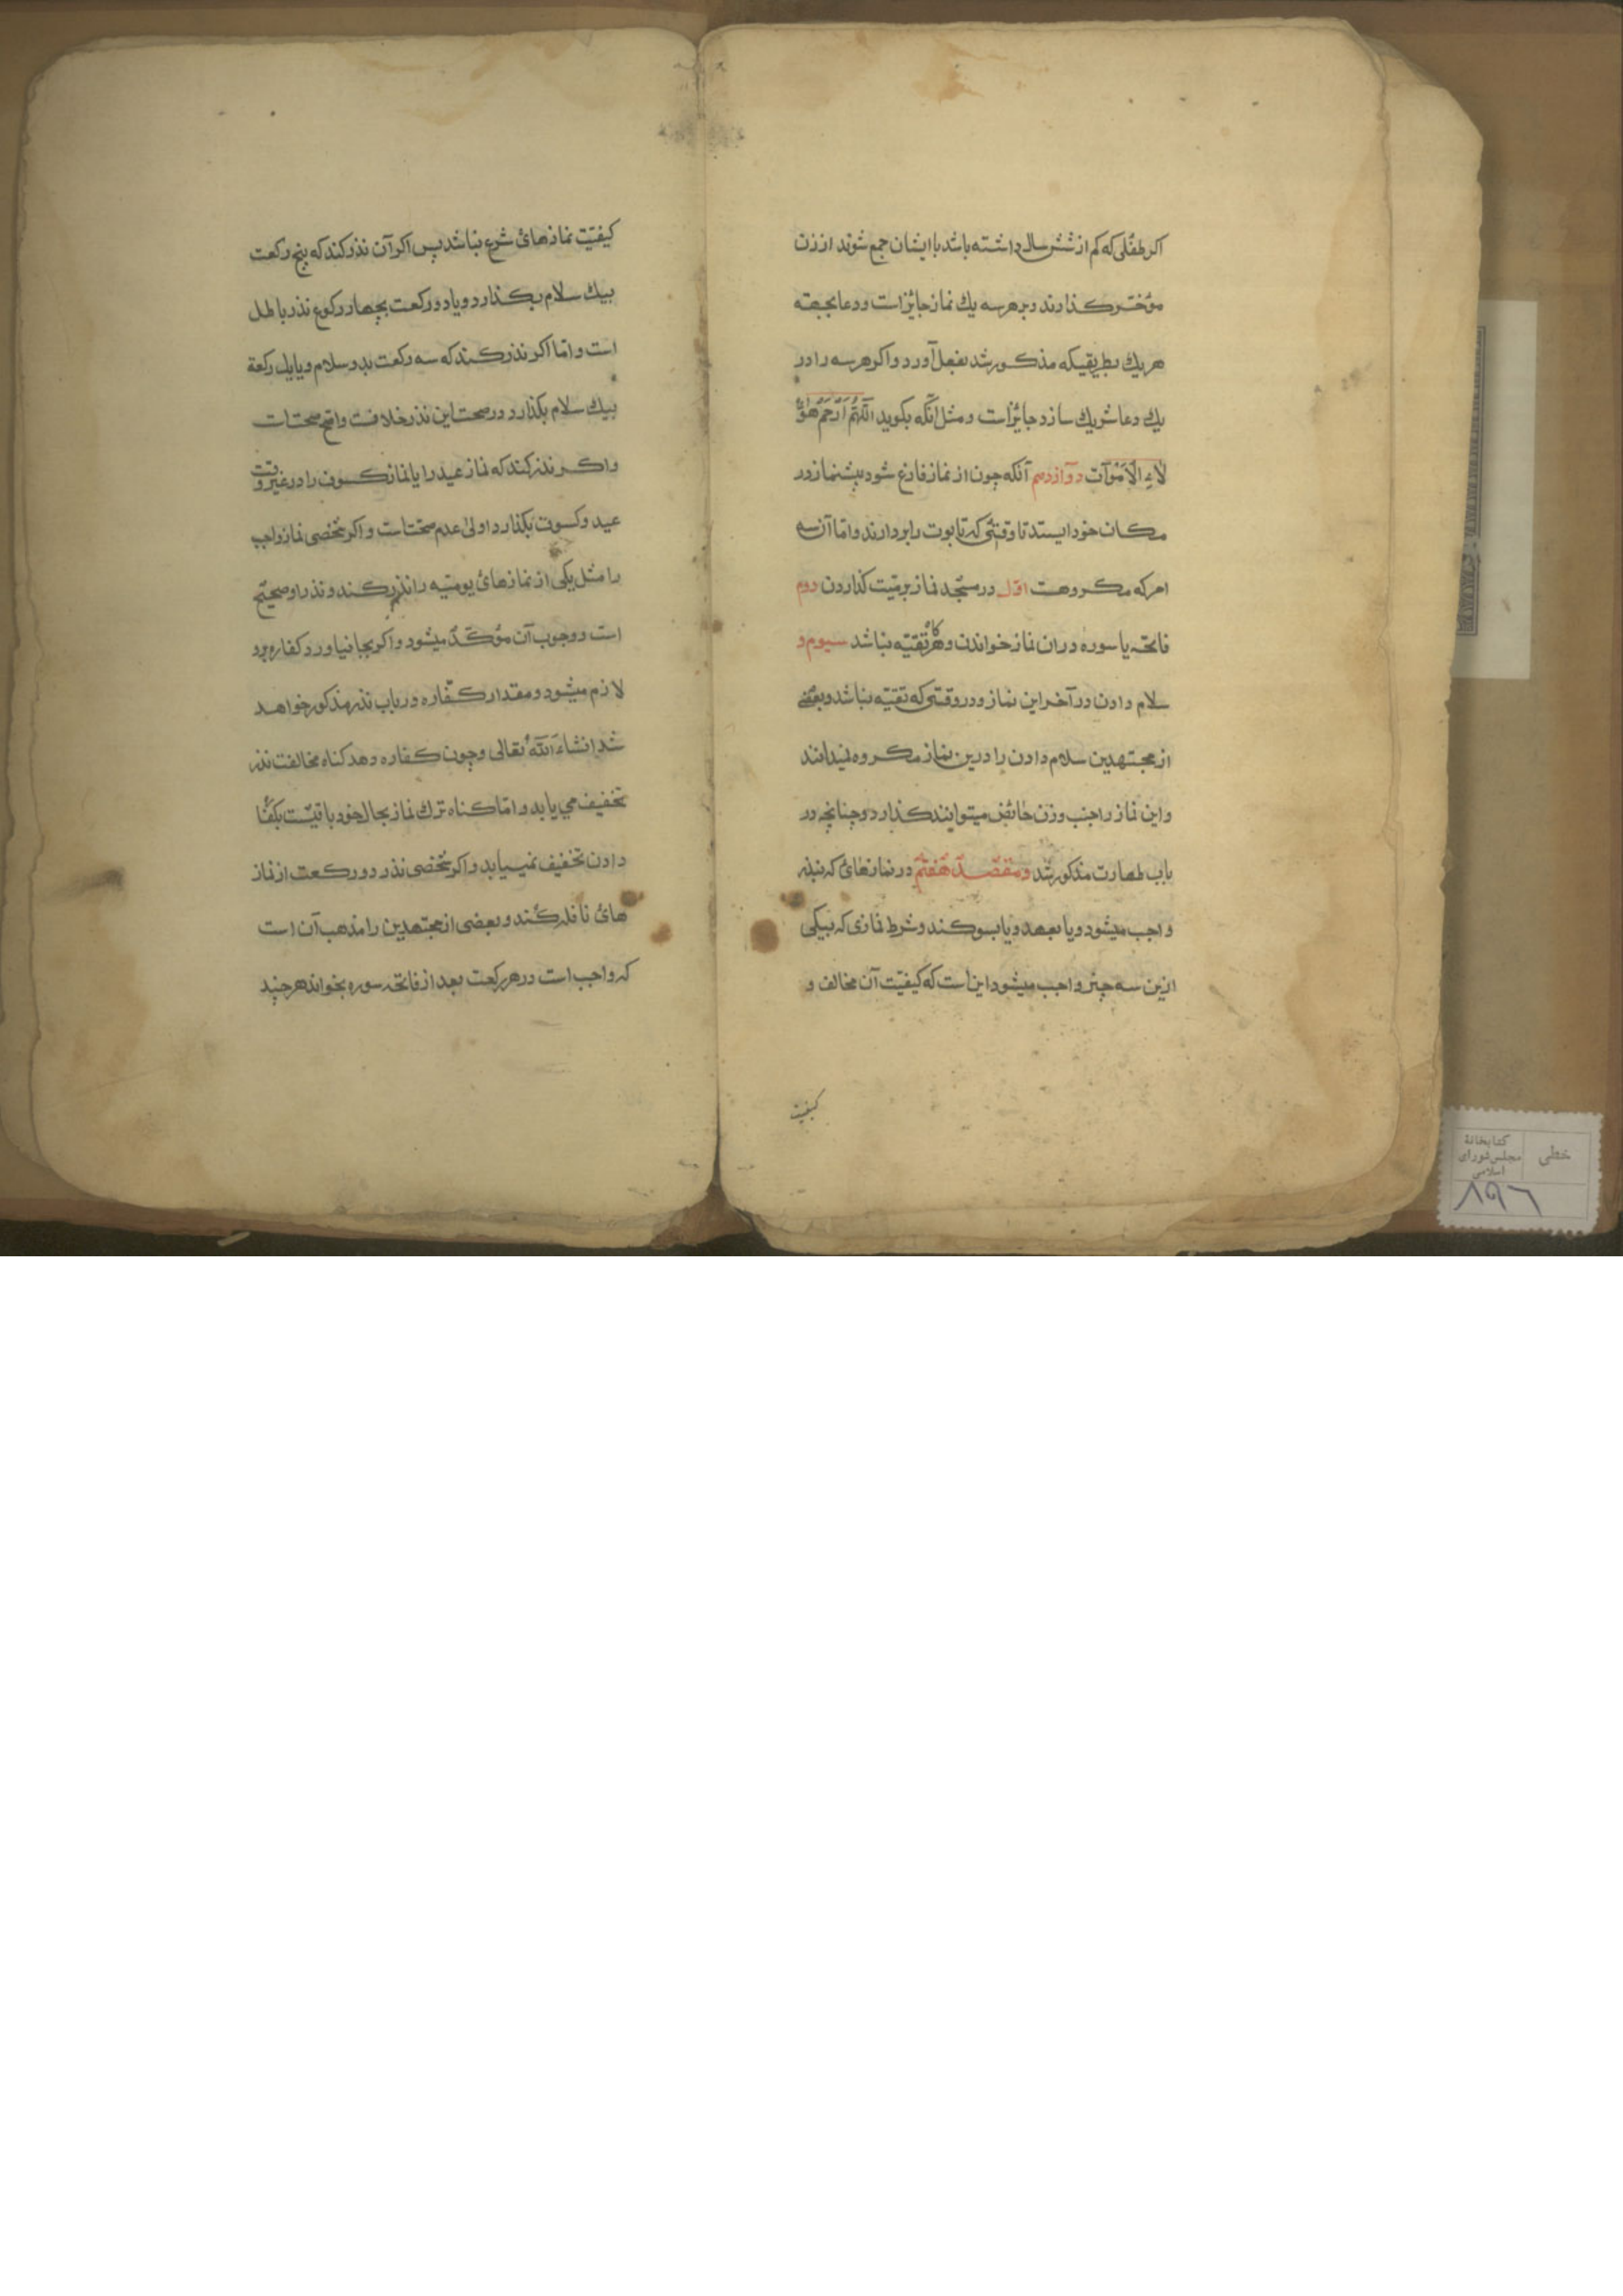 اکر طفلی که کم از شش سال داشته باشد با ایشان جمع شوند از زن
مؤخّر کذارند و بر هر سه یك نماز جائز است و دعا بجهته
هر یك بطریقیکه مذکور شد بفعل آورد و اکر هر سه را در
یك دعا شریك سازد جائز است و مثل آنکه بکوید اَللّهُمَّ اَرْحَمْ هٰؤُ
لاءِ الاَمْوَات دوازدهم آنکه چون از نماز فارغ شود پیشنماز در
مکان خود ایستد تا وقتی که تابوت را بردارند و اما آن سه
امر که مکروهست اوّل در مسجد نماز بر میّت کذاردن دوم
فاتحه یا سوره دران نماز خواندن و هرکاه تقیّه نباشد سیوم و
سلام دادن در آخر این نماز و در وقتی که تقیّه نباشد و بعضی
از مجتهدین سلام دادن را درین نماز مکروه نمیدانند
و این نماز را جنب و زن حائض میتوانند کذارد و چنانچه در
باب طهارت مذکور شد و مقصد هفتم در نمازهائ که بنذر
واجب میشود و یا بعهد و یا بسوکند و شرط نمازی که بیکی
ازین سه چیز واجب میشود این است که کیفیّت آن مخالف و
کیفیت
کیفیّت نمازهائ شرع نباشد پس اکر آن نذر کند که پنج رکعت
بیك سلام بکذارد و یا دو رکعت بچهار رکوع نذر باطل
است و امّا اکر نذر کند که سه رکعت بدو سلام و یا یك رکعة
بیك سلام بکذارد در صحت این نذر خلافت و اصح صحتات
و اکر نذر کند که نماز عید را یا نماز کسوف را در غیر وقت
عید و کسوت بکذارد اولی عدم صحتات و اکر شخصی نماز واجب
را مثل یکی از نمازهائ یومیّه را نذر کند و نذر او صحیح
است و وجوب آن مؤکّد میشود و اکر بجا نیاورد کفاره برو
لازم میشود و مقدار کفّاره در باب نذر مذکور خواهد
شد انشاءَ اللّه تعالی و چون کفاره دهد کناه مخالفت نذر
تخفیف می یابد و امّا کناه ترك نماز بحال خود باقیست بکفّا
دادن تخفیف نمییابد و اکر شخصی نذر دو رکعت از نماز
هائ نافله کند و بعضی از مجتهدین را مذهب آن است
که واجب است در هر رکعت بعد از فاتحه سوره بخواند هر چند
خطی
کتابخانۀ
مجلس شورای
اسلامی
۸۹۶